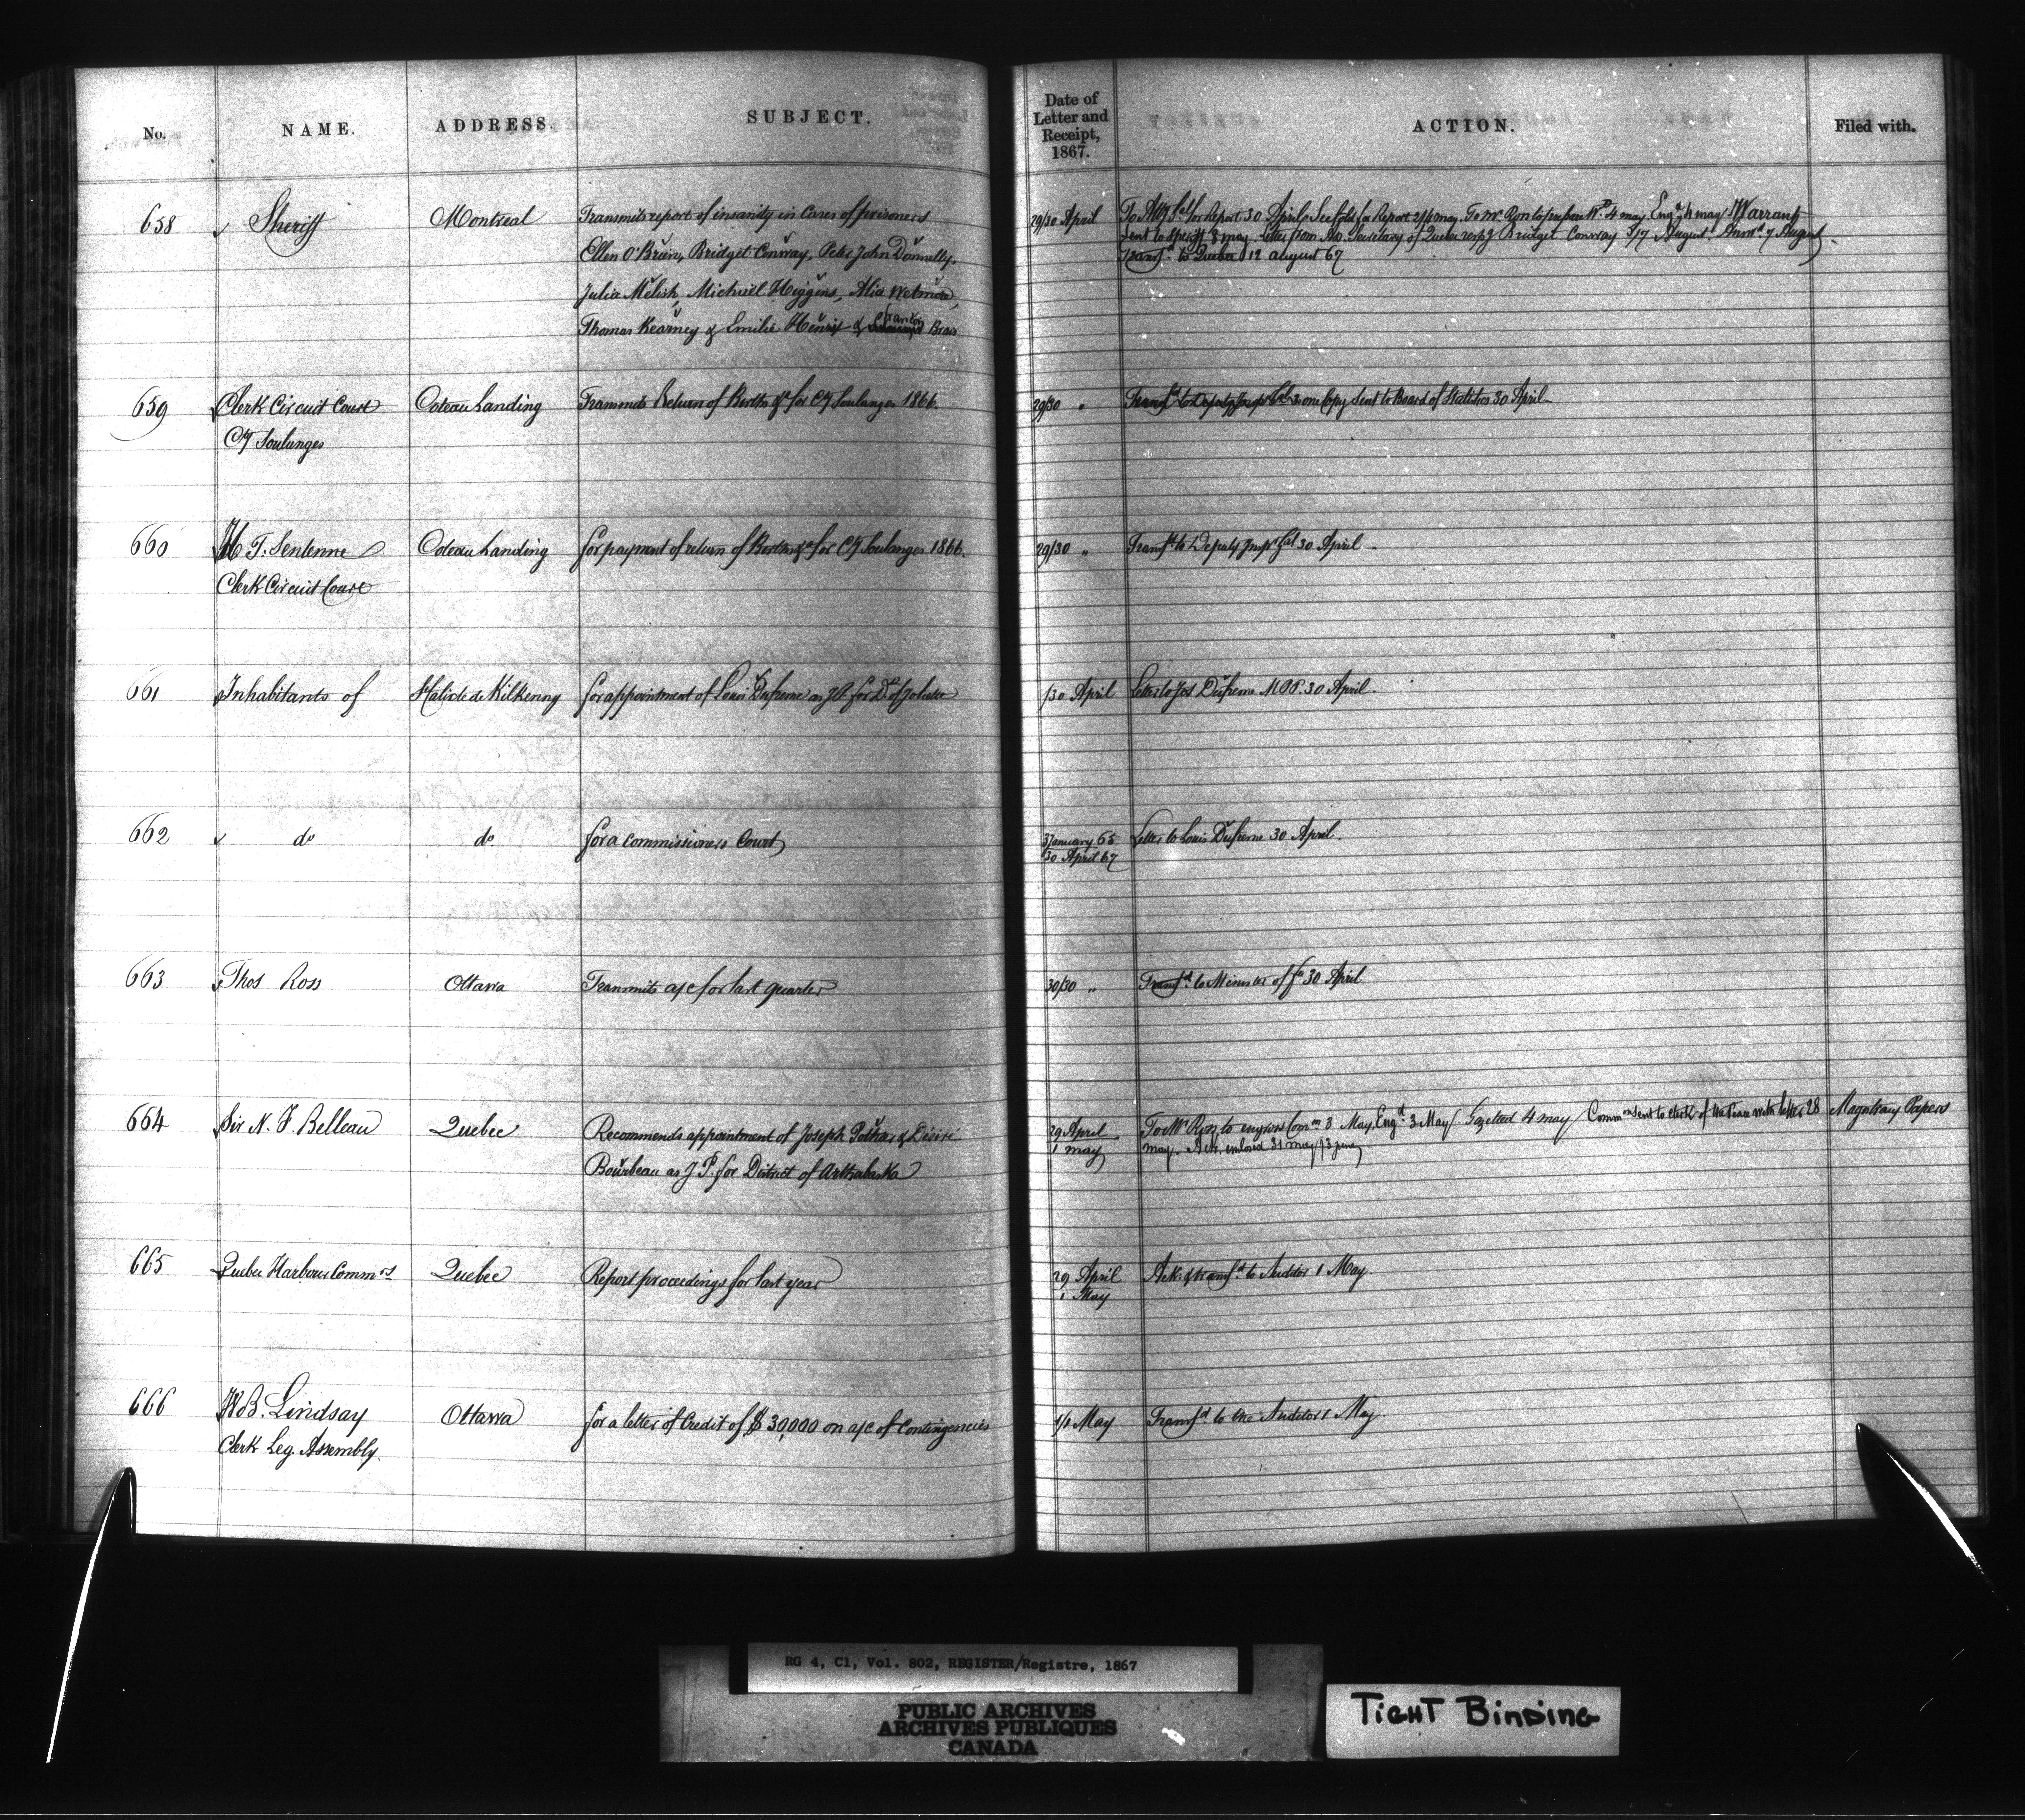 No. NAME. ADDRESS. SUBJECT. Date of Letter and Receipt, 1867. ACTION. Filed with.
658 Sheriff Montreal Transmits report of insanity in cases of prisoners
Ellen O'Brien, Bridget Conway, Peter John Donnelly,
Julia Melish, Michael Higgins, Alia Wetmore,
Thomas Kearney & Emilie Henrie & Brais
29/30 April To Atty Genl for Report 30 April. See fold for Report 2/4 may. To Mr. Ron to prepare Wt. 4 may. Engd 4 may Warrants
sent to Sheriff 8 may. Letter from Secretary of Quebec respg Bridget Conway 3/7 August. Answd 7 August.
Transfd to Quebec 12 august 67
659 Clerk Circuit Court Coteau Landing Transmits Return of Births &c for Cty Soulanges 1866. 29/30 " one Copy sent to Board of Statistics 30 April
Cty Soulanges
660 H T. Sentenne Coteau Landing for payment of return of Births &c for Cty Soulanges 1866. 29/30 " Transfd to Deputy Inspr Genl 30 April
Clerk Circuit Court
661 Inhabitants of St Calixte de Kilkenny for appointment of Louis Dufresne as J.P. for Dt of Joliette /30 April Letter to Jos Dufresne MPP. 30 April.
662 do do for a commissioners Court 3 January 65 Letter to Louis Dufresne 30 April.
/30 April 67
663 Thos Ross Ottawa Transmits a/c for last quarter 30/30 " Transfd to Minister of fin 30 April
664 Sir N. F. Belleau Quebec Recommends appointment of Joseph Pothier & Désiré
Bourbeau as J.P. for District of Arthabaska
29 April To Mr Ross to engross Comn 3 May. Engd 3 May Gazetted 4 may Commn sent to clerk of the Peace with letter 28 Magistracy Papers
1 may may. Ack. enclosed 31 may/3 june
665 Quebec Harbour Commrs Quebec Report proceedings for last year 29 April Ack: & transfd to Auditor 1 May
1 May
666 W B. Lindsay Ottawa for a letter of Credit of $30,000 on a/c of Contingencies 1/1 May Transfd to the Auditor 1 May
Clerk Leg. Assembly
RG 4, C1, Vol. 802, REGISTER/Registre, 1867
PUBLIC ARCHIVES
ARCHIVES PUBLIQUES
CANADA
TIGHT BINDING